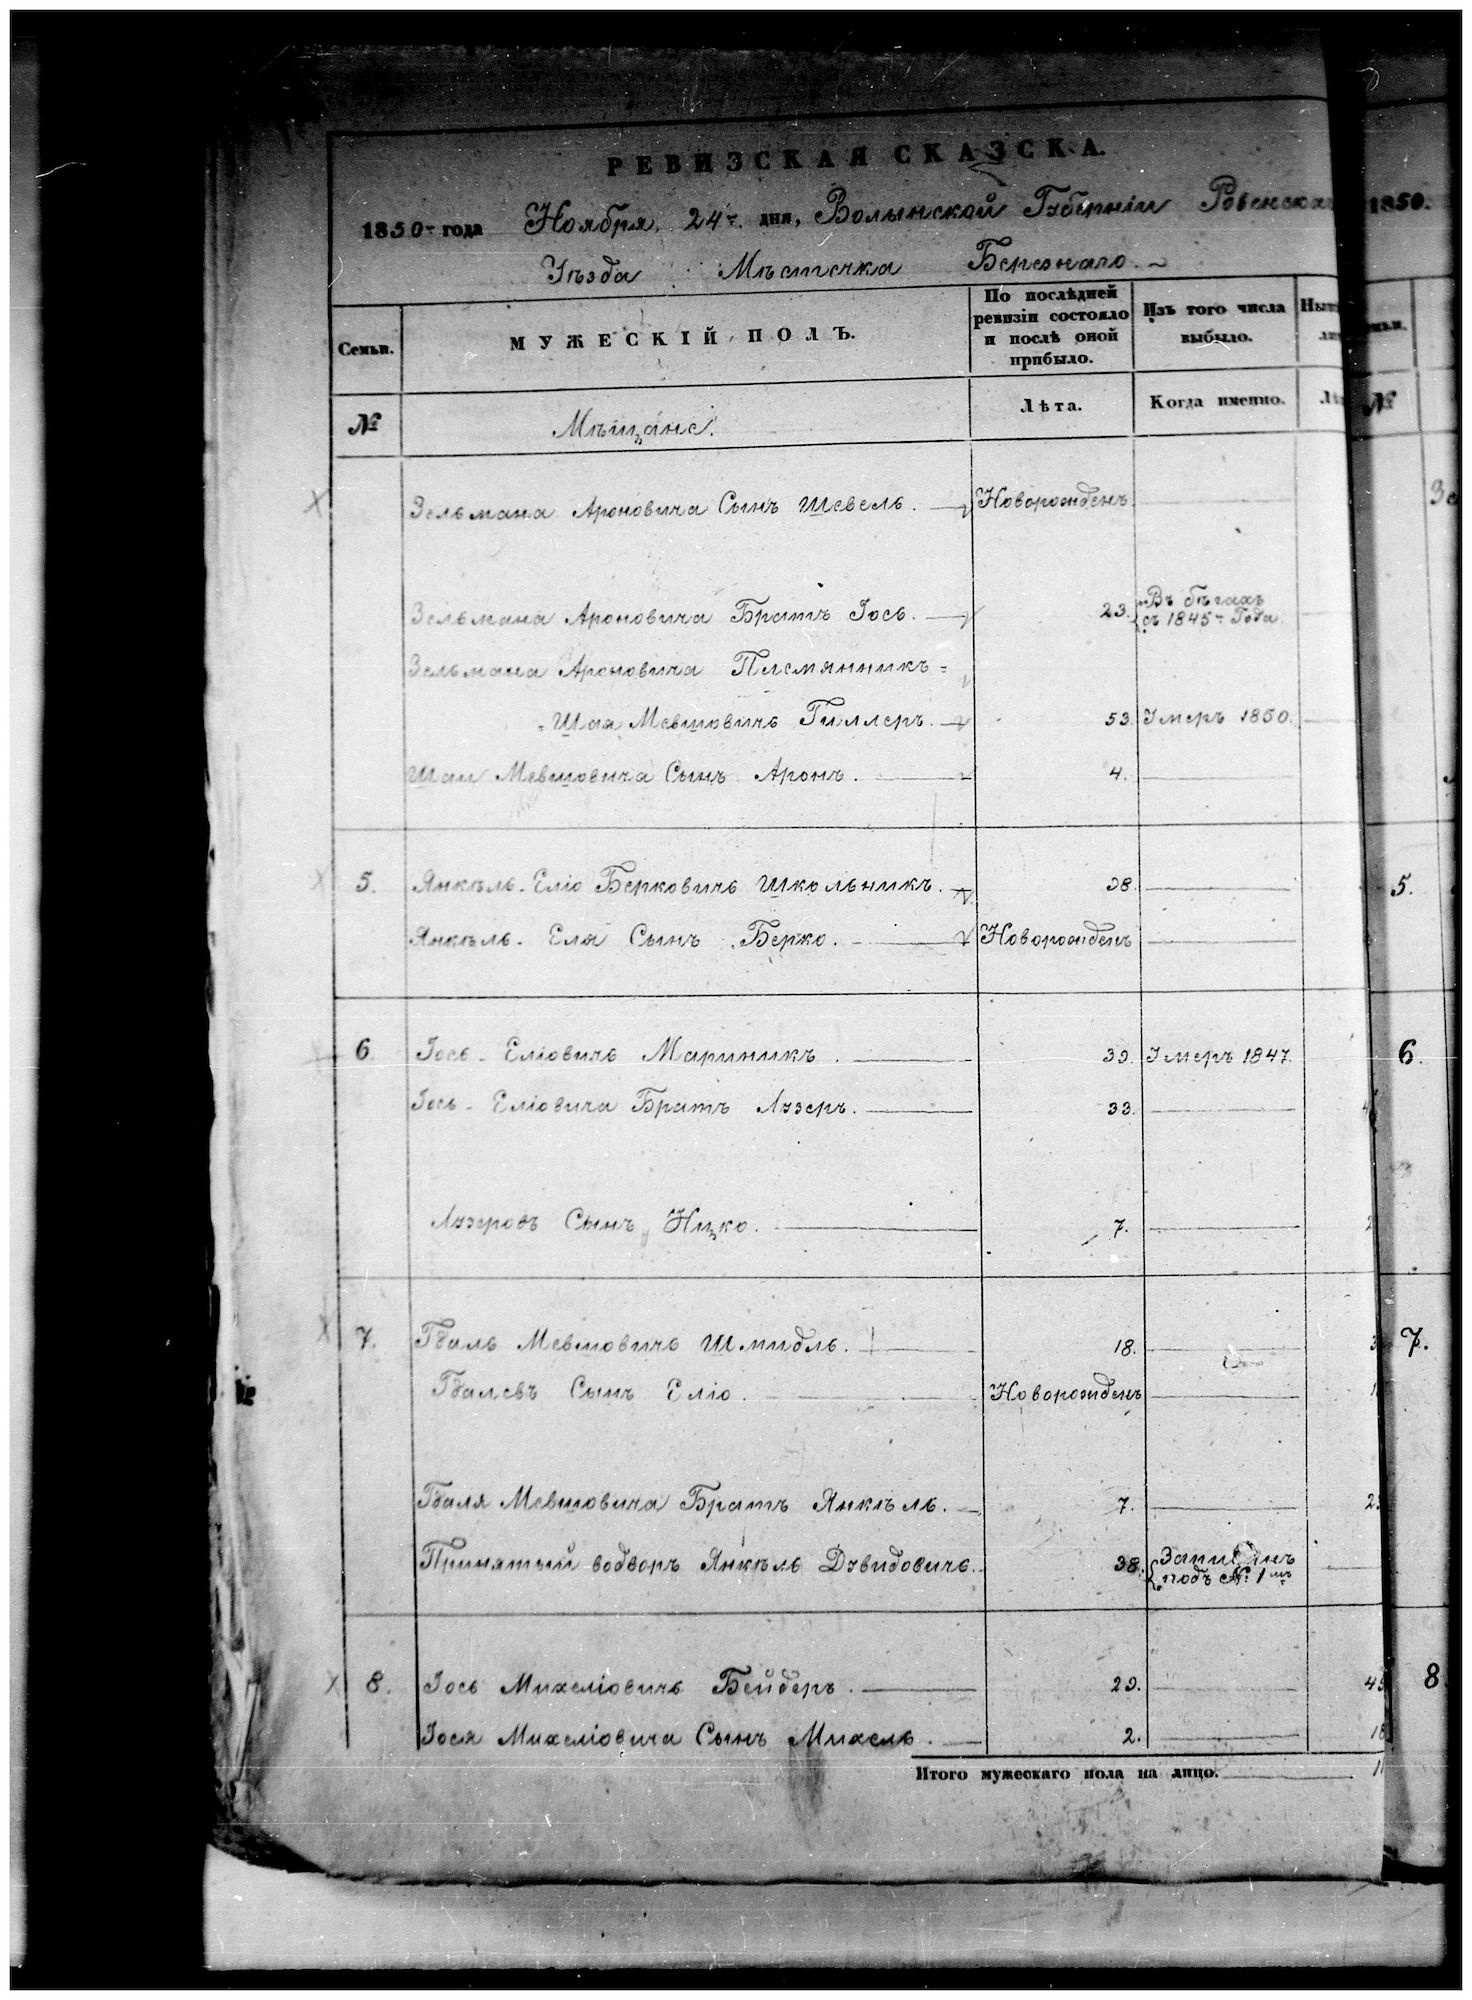 РЕВИЗСКАЯ СКАЗСКА.
1850 года Ноября 24 дня, Волынской Губерніи Ровенскаго
Уѣзда Мѣстечка Березнаго.
Семьи. МУЖЕСКІЙ ПОЛЪ. По послѣдней ревизіи состояло и послѣ оной прибыло. Изъ того числа выбыло.
№ Мѣщане. Лѣта. Когда именно.
Зельмана Ароновича Сынъ Шевель. Новорожденъ
Зельмана Ароновича Братъ Іось. 23. Въ бѣгахъ съ 1845 Года
Зельмана Ароновича Племянникъ=
=Шая Мевшовичъ Гиллеръ. 53. Умеръ 1850.
Шаи Мевшовича Сынъ Аронъ. 4.
5. Янкѣль-Еліо Берковичъ Школьникъ. 38. 5.
Янкѣль-Еля Сынъ Берко. Новорожденъ
6 Іось-Еліовичъ Мариникъ. 39. Умеръ 1847. 6.
Іось-Еліовича Братъ Лузеръ. 33.
Лузеровъ Сынъ Ицко. 7.
7. Гдаль Мевшовичъ Шмидль. 18. 7.
Гдалевъ Сынъ Еліо. Новорожденъ
Гдаля Мевшовича Братъ Янкѣль. 7.
Принятый водворъ Янкѣль Дувидовичъ. 38. Записанъ подъ № 1мъ
8. Іось Михеліовичъ Бейдеръ. 29. 8
Іося Михеліовича Сынъ Михель. 2. 18
Итого мужескаго пола на лицо.
1850.
№